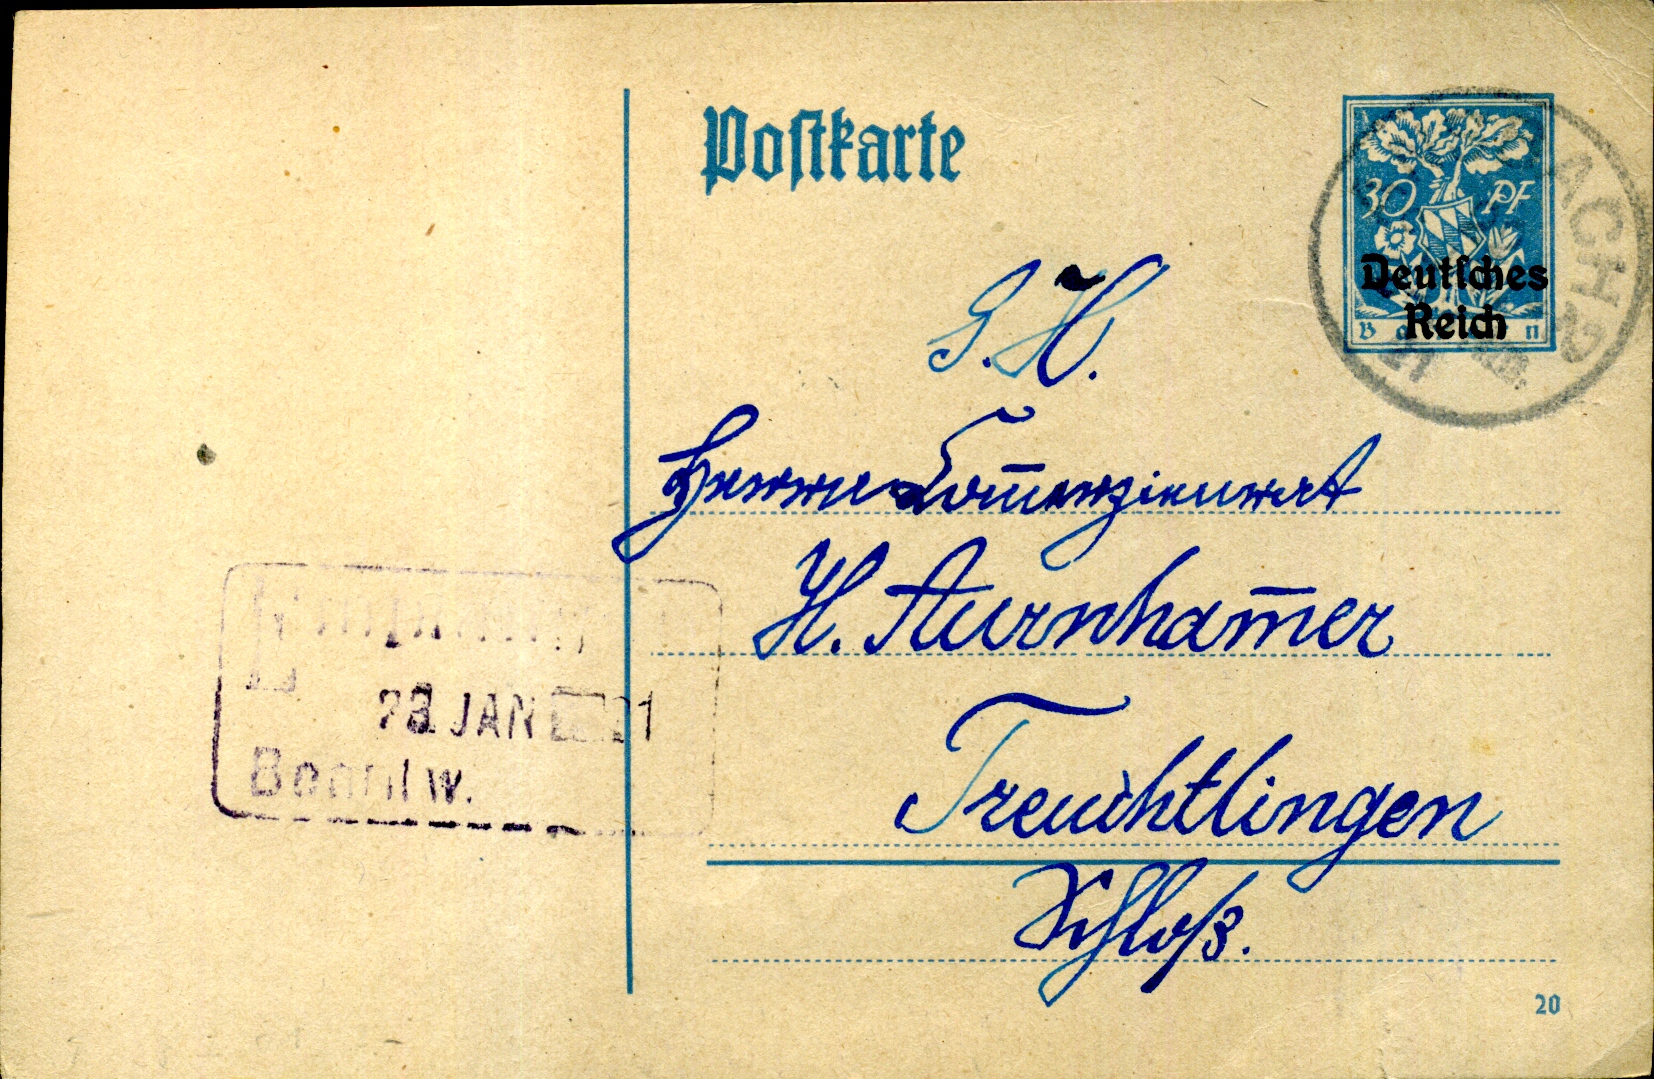 Postkarte
30 PF
Deutsches
Reich
ACH 2
S. H.
Herrn Com̅erzienrat
H. Aurnham̅er
Treuchtlingen
Schloß.
23. JAN 1
Beantw.
20